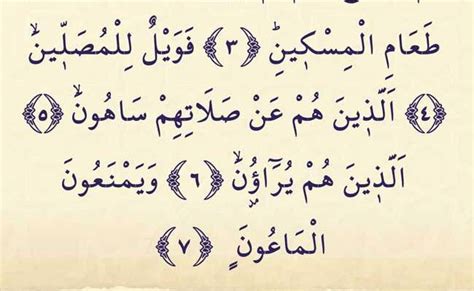 طَعَامِ الْمِسْكٖينِؕ ﴿٣﴾ فَوَيْلٌ لِلْمُصَلّٖينَۙ
﴿٤﴾ اَلَّذٖينَ هُمْ عَنْ صَلَاتِهِمْ سَاهُونَۙ ﴿٥﴾
اَلَّذٖينَ هُمْ يُرَٓاؤُ۫نَۙ ﴿٦﴾ وَيَمْنَعُونَ
الْمَاعُونَ ﴿٧﴾